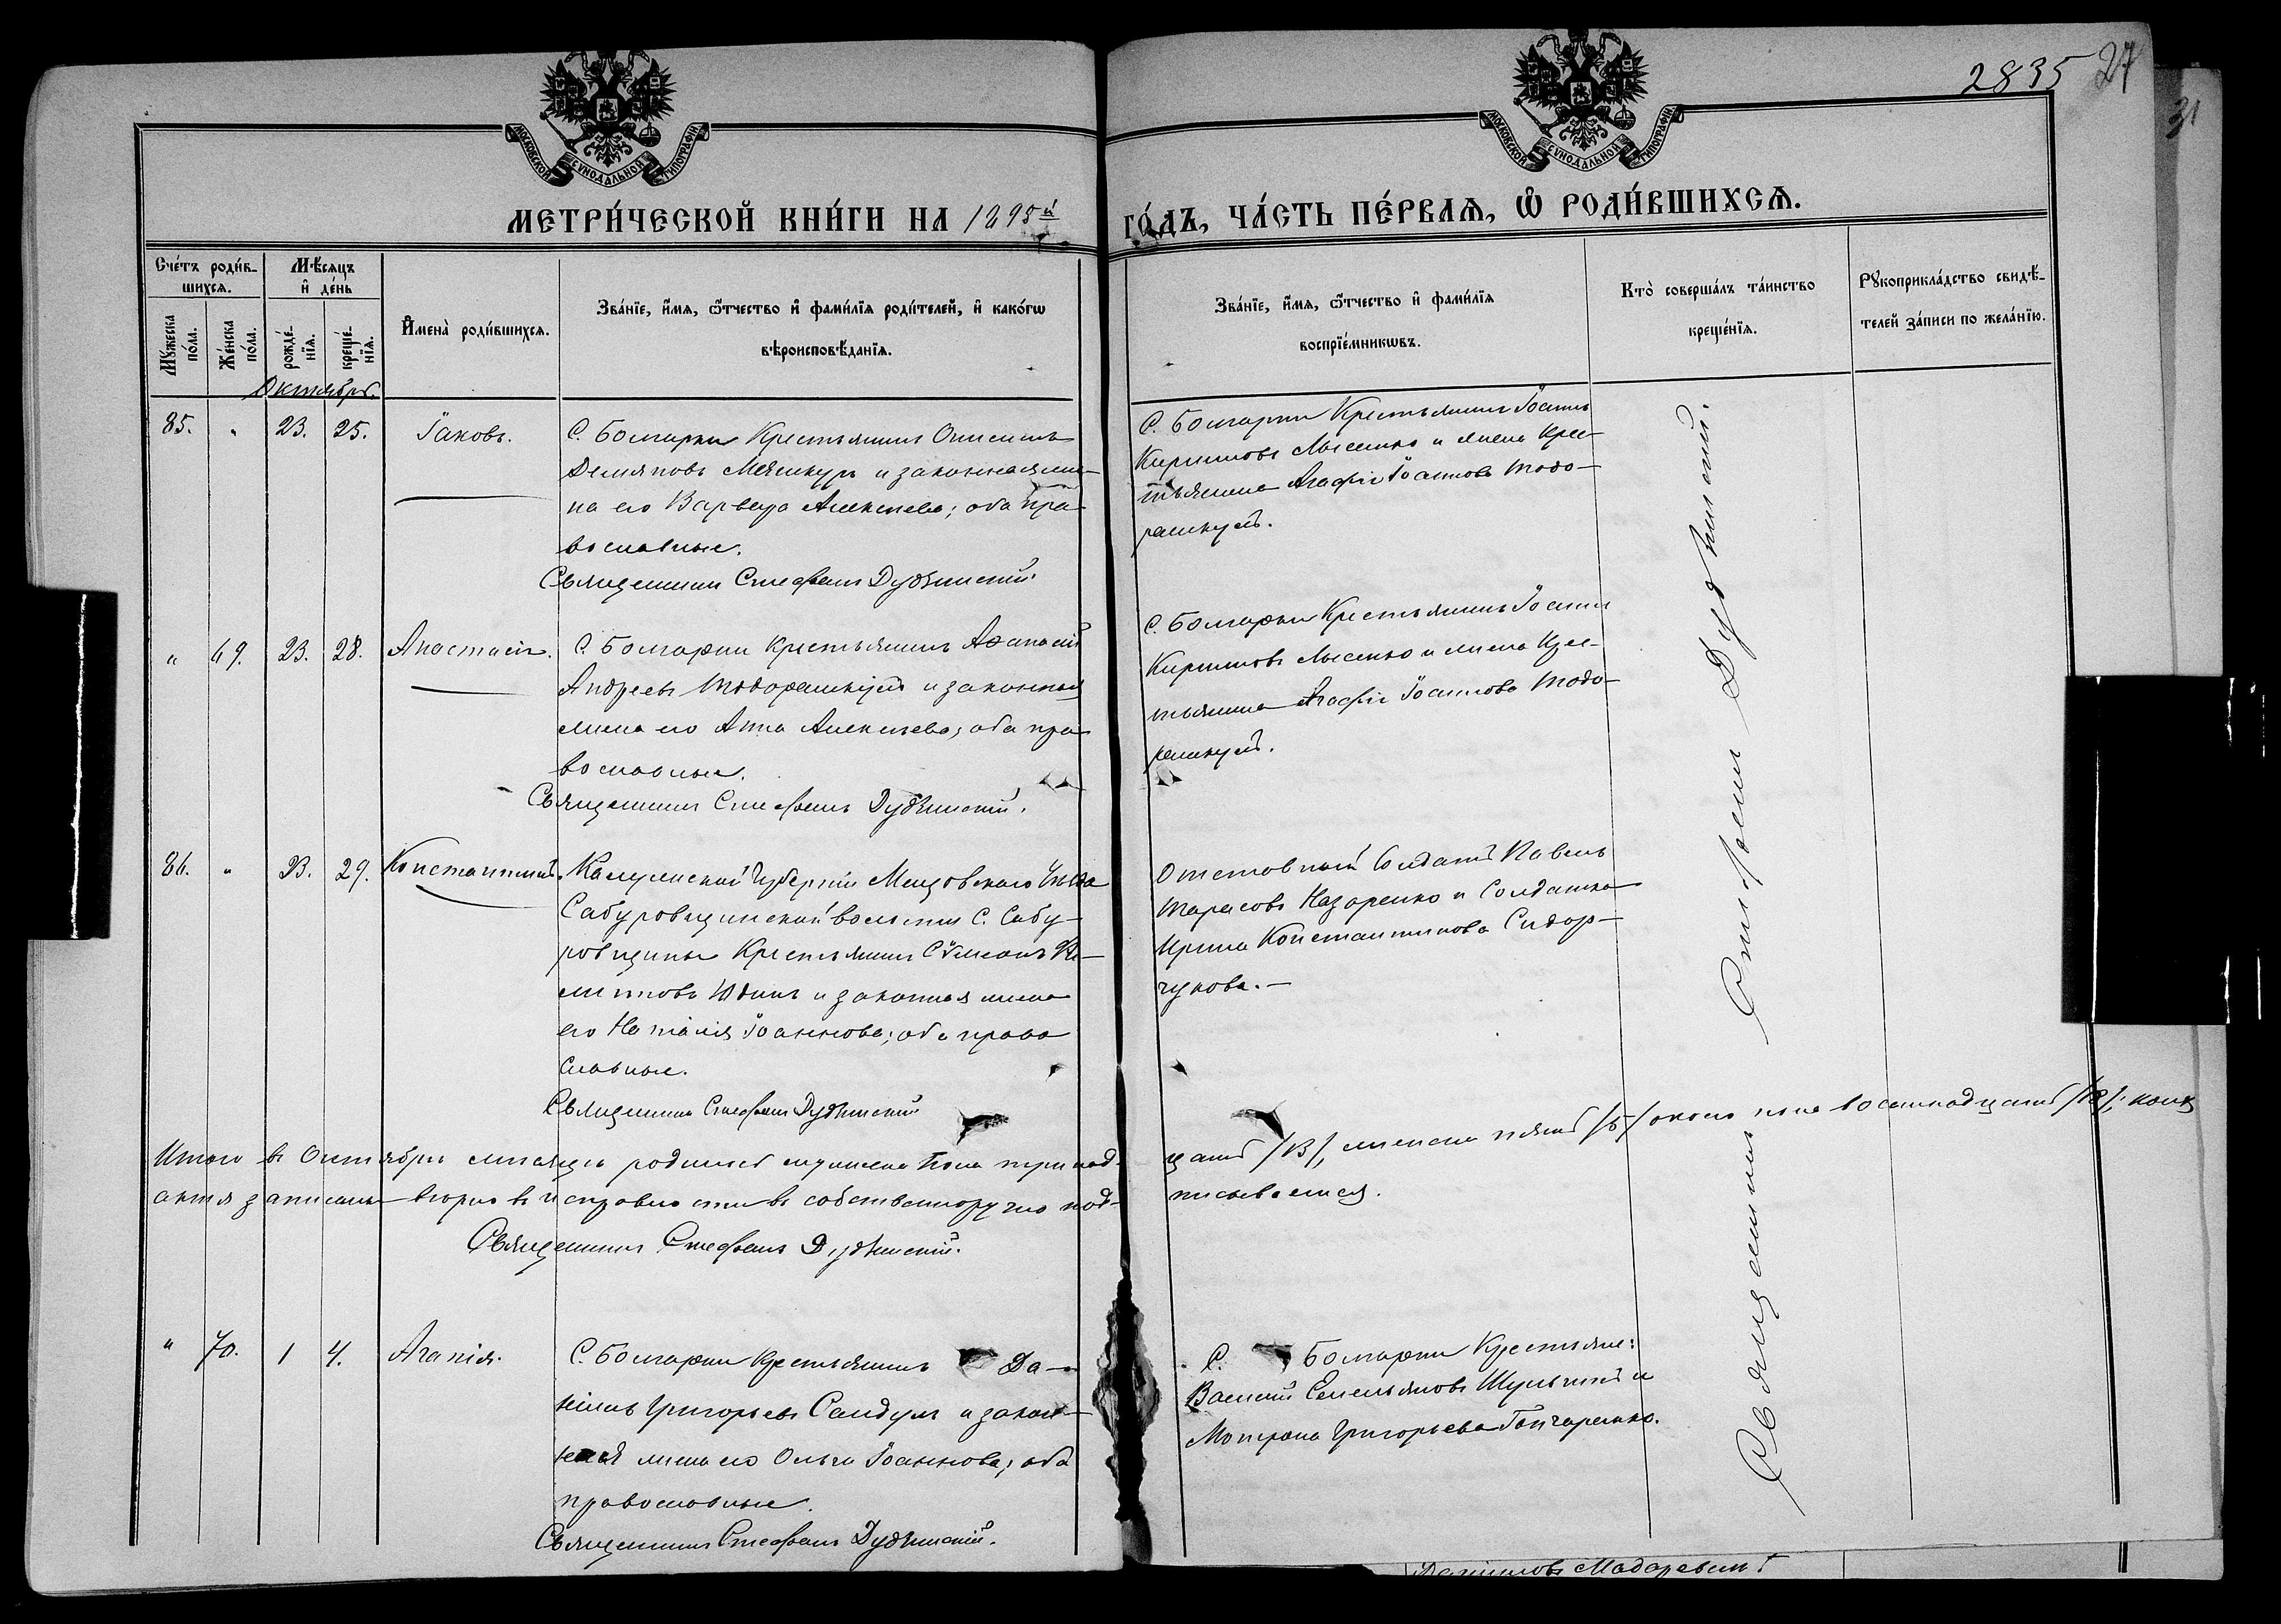 2835 27
31
МОСКОВСКОЙ СУНОДАЛЬНОЙ ТИПОГРАФІИ
МОСКОВСКОЙ СУНОДАЛЬНОЙ ТИПОГРАФІИ
МЕТРИ́ЧЕСКОЙ КНИ́ГИ НА 1895й
ГО́ДЪ, ЧА́СТЬ ПЕ́РВАѦ, Ѡ҆ РОДИ́ВШИХСѦ.
Сче́тъ роди́в-
шихсѧ.
Мꙋ́жеска по́ла.
Же́нска по́ла.
Мѣ́сяцъ
и҆ де́нь
рожде́-
нїѧ.
креще́-
нїѧ.
И҆мена̀ роди́вшихсѧ.
Зва́нїе, и҆́мѧ, ѻ҆́тчество и҆ фами́лїѧ роди́телей, и҆ како́гѡ
вѣроисповѣ́данїѧ.
Зва́нїе, и҆́мѧ, ѻ҆́тчество и҆ фами́лїѧ
воспрїе́мникѡвъ.
Кто̀ соверша́лъ та́инство
креще́нїѧ.
Рꙋкоприкла́дство свидѣ́-
телей за́писи по жела́нїю.
Октябрь.
85. " 23. 25. Іаковъ.
С. Болгарки Крестьянинъ
Демяновъ и законная же-
на его Варвара Алексѣева; оба пра-
вославные.
Священникъ Стефанъ Дудзинскій.
С. Болгарки Крестьянинъ Іоаннъ
Кирилловъ Лысенко и жена Крес-
тьянина Агафія Іоаннова Тодо-
рашкулъ.
" 69. 23. 28. Анастасія.
С. Болгарки Крестьянинъ Аѳанасій
Андреевъ Тодорашкулъ и законная
жена его Анна Алексѣева; оба пра-
вославные.
Священникъ Стефанъ Дудзинскій.
С. Болгарки Крестьянинъ Іоаннъ
Кирилловъ Лысенко и жена Крес-
тьянина Агафія Іоаннова Тодо-
рашкулъ.
86. " 23. 29. Константинъ.
Калужской Губерніи Мещовскаго Уѣзда
Сабуровщинской волости С. Сабу-
ровщины Крестьянинъ Сѵмеонъ
Юдинъ и законная жена
его Наталія Іоаннова; оба право
славные.
Священникъ Стефанъ Дудзинскій
Отставной Солдатъ Павелъ
Тарасовъ Назаренко и Солдатка
Ирина Константинова Сидор-
чукова.-
Итого въ Октябрѣ мѣсяцѣ родилось мужеска пола тринад-
цать /13/, женска пять /5/ обоего пола восемнадцать /18/; коихъ
актъ записанъ вѣрно въ исправности въ собственноручно под-
писываемся.
Священникъ Стефанъ Дудзинскій.
" 70. 1 4. Агапія.
С. Болгарки Крестьянинъ Да-
ніилъ Григорьевъ Сандулъ и закон-
ная жена его Ольга Іоаннова; оба
православные.
Священникъ Стефанъ Дудзинскій.
С. Болгарки Крестьяне:
Василій Емельяновъ и
Матрона Григорьева Гончаренко.
Священникъ Стефанъ Дудзинскій.